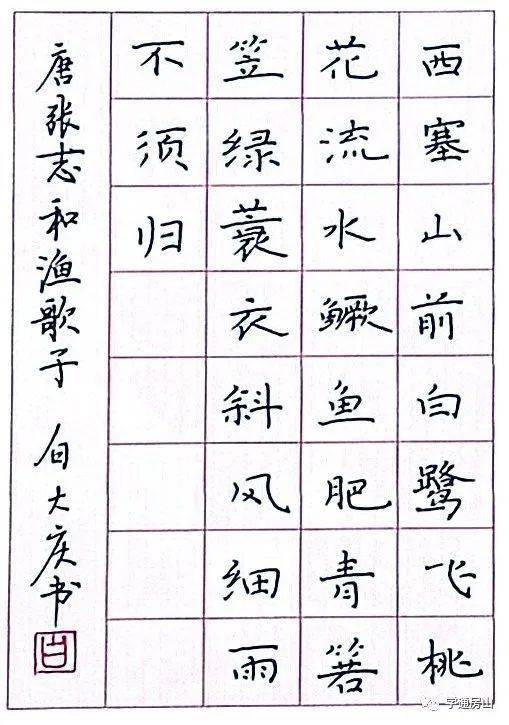 西塞山前白鹭飞桃
花流水鳜鱼肥青箬
笠绿蓑衣斜风细雨
不须归
唐张志和渔歌子 白大庆书
白
字通房山